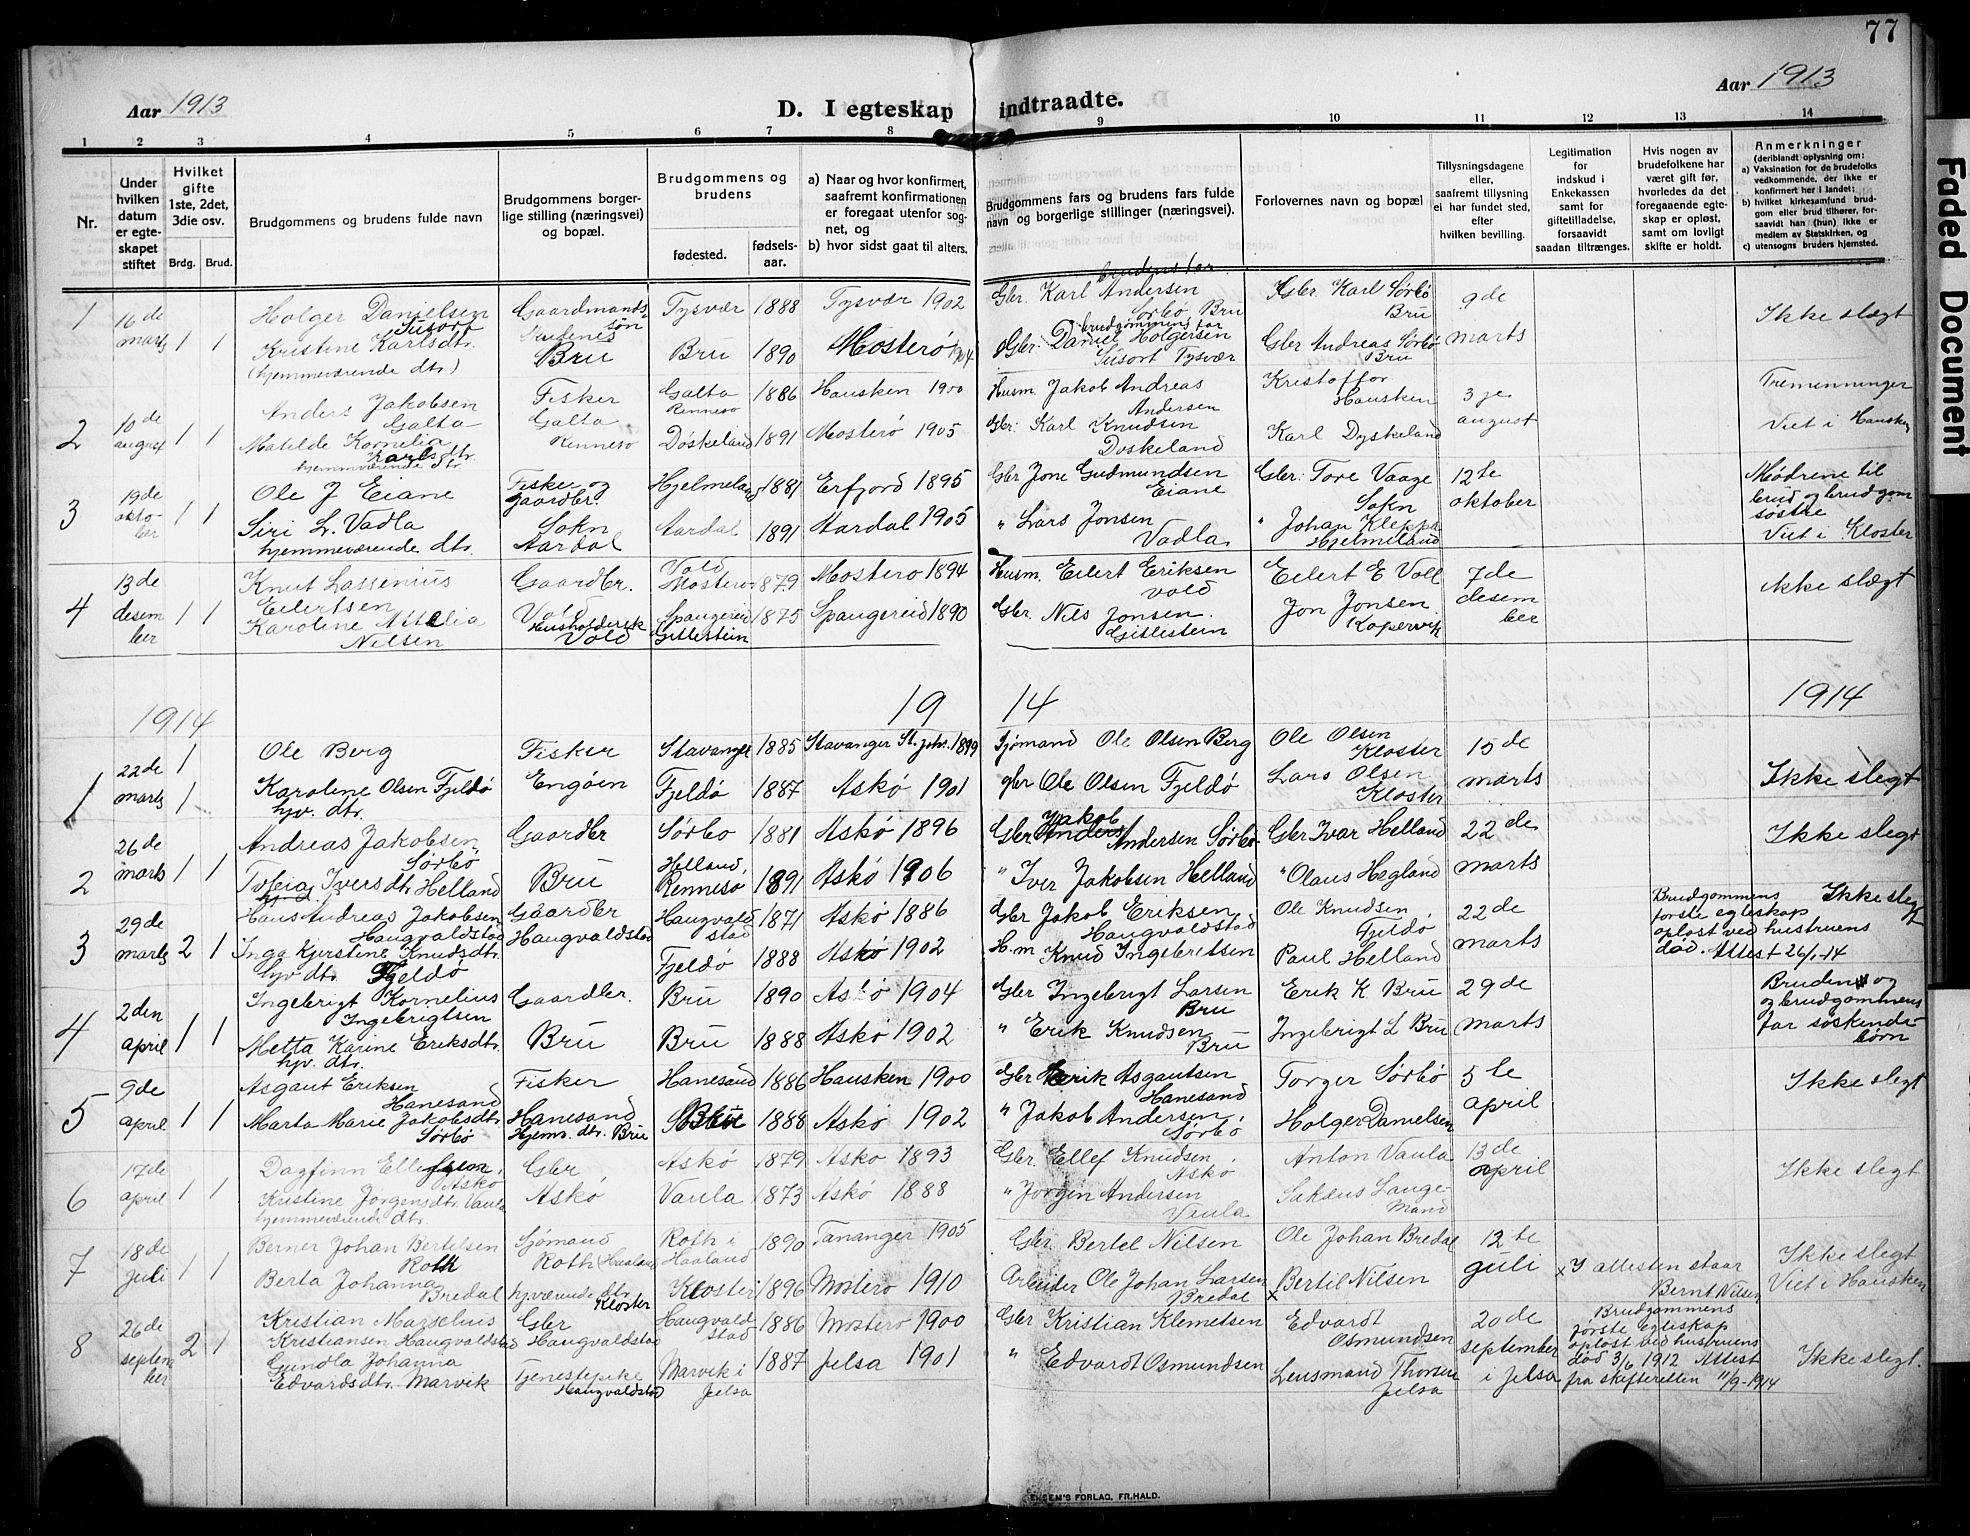 77
Aar 1913
D. I egteskap indtraadte.
Aar 1913
1 2 3 4 5 6 7 8 9 10 11 12 13 14
Nr.
Under hvilken datum er egteskapet stiftet
Hvilket gifte 1ste, 2det, 3die osv.
Brdg. Brud.
Brudgommens og brudens fulde navn
Brudgommens borgerlige stilling (næringsvei) og bopæl.
Brudgommens og brudens
fødested.
fødselsaar.
a) Naar og hvor konfirmert, saafremt konfirmationen er foregaat utenfor sognet, og
b) hvor sidst gaat til alters.
Brudgommens fars og brudens fars fulde navn og borgerlige stillinger (næringsvei).
Forlovernes navn og bopæl
Tillysningsdagene eller, saafremt tillysning ei har fundet sted, efter hvilken bevilling.
Legitimation for indskud i Enkekassen samt for giftetilladelse, forsaavidt saadan tiltrænges.
Hvis nogen av brudefolkene har været gift før, hvorledes da det foregaaende egteskap er opløst, samt om lovligt skifte er holdt.
Anmerkninger
(deriblandt oplysning om:
a) Vaksination for de brudefolks vedkommende, der ikke er konfirmert her i landet;
b) hvilket kirkesamfund brudgom eller brud tilhører, forsaavidt han (hun) ikke er medlem av Statskirken, og
c) utensogns bruders hjemsted.
1 16de marts 1 1
Holger Danielsen Susort
Kristine Karlsdtr.
(hjemmeværende dtr)
Gaardmandssøn
Skudenes
Bru
Tysvær 1888 Tysvær 1902
Bru 1890 Mosterø 1904
brudens far
Gbr. Karl Andersen Sørbø, Bru
brudgommens far
Gbr. Daniel Holgersen Susort Tysvær
Gbr. Karl Sørbø Bru
Gbr Andreas Sørbø Bru
9de marts
Ikke slægt
2 10de august 1 1
Anders Jakobsen Galta
Matilde Kornelia Karlsdtr.
hjemmværende dtr.
Fisker
Galta
Rennesø
Galta Rennesø 1886 Hausken 1900
Døskeland 1891 Mosterø 1905
Husm. Jakob Andreas Andersen
Gbr. Karl Knudsen Døskeland
Kristoffor Hausken
Karl Dyskeland
3je august
Tremenninger
Viet i Hausken
3 19de oktober 1 1
Ole J Eiane
Siri L. Vadla
hjemmeværende dtr.
Fisker og gaardbr.
Sokn
Aardal
Hjelmeland 1881 Erfjord 1895
Aardal 1891 Aardal 1905
Gbr Jone Gudmundsen Eiane
" Lars Jonsen Vadla
Gbr. Tore Vaage Sokn
" Johan Kleppa Hjelmeland
12te oktober
Mødrene til brud og brudgom søstre
Viet i Kloster
4 13de desember 1 1
Knut Lassenius Eilertsen
Karoline Nilsen
Gaardbr.
Vold
Husholderske
Vold
Vold Mosterø 1879 Mosterø 1894
Spangereid Gitlestein 1875 Spangereid 1890
Husm. Eilert Eriksen Vold
Gbr. Nils Jonsen Gitlestein
Eilert E Voll
Jon Jonsen Kopervik
7de desember
Ikke slægt
1914 19 14 1914
1 22de marts 1 1
Ole Berg
Karoline Olsen Fjeldø
hjv. dtr.
Fisker
Engøen
Stavanger 1885 Stavanger St. Joh. 1899
Fjeldø 1887 Askø 1901
Sjømand Ole Olsen Berg
gbr Ole Olsen Fjeldø
Ole Olsen Kloster
Lars Olsen Kloster
15de marts
Ikke slegt
2 26de marts 1 1
Andreas Jakobsen Sørbø
Iversdtr Helland
Gaardbr
Bru
Sørbø 1881 Askø 1896
Helland, Rennesø 1891 Askø 1906
Gbr Jakob Andersen Sørbø
" Iver Jakobsen Helland
Gbr Ivar Helland
" Olaus Hegland
22de marts
Ikke slegt
3 29de marts 2 1
Hans Andreas Jakobsen Haugvaldstad
Inga Kjerstine Knudsdtr.
hjv dtr. Fjeldø
Gaardbr
Haugvaldstad
Haugvaldstad 1871 Askø 1886
Fjeldø 1888 Askø 1902
Gbr Jakob Eriksen Haugvaldstad
H.m Knud Ingebretsen
Ole Knudsen, Fjeldø
Paul Helland
22de marts
Brudgommens første egteskap opløst ved hustruens død. Attest 26/1-14
Ikke slegt
4 2den april 1 1
Ingebrigt Kornelius Ingebrigtsen
Metta Karine Eriksdtr.
hjv. dtr.
Gaardbr.
Bru
Bru 1890 Askø 1904
Bru 1888 Askø 1902
Gbr Ingebrigt Larsen Bru
" Erik Knudsen Bru
Erik K Bru
Ingebrigt L Bru
29de marts
Brudens og og brudgommens far søskendebørn
5 9de april 1 1
Asgaut Eriksen Hanesand
Marta Marie Jakobsdtr. Sørbø
Fisker
Hanesand
Hjems. dtr. Bru
Hanesand 1886 Hausken 1900
Bru 1888 Askø 1902
Gbr Erik Asgautsen Hanesand
" Jakob Andersen Sørbø
Torger Sørbø
Holger Danielsen
5te april
Ikke slegt
6 17de april 1 1
Dagfinn Ellefsen, Askø
Kristine Jørgensdtr. Vaula
hjemmeværende dtr.
Gbr
Askø
Askø 1879 Askø 1893
Vaula 1873 Askø 1888
Gbr. Ellef Knudsen, Askø
" Jørgen Andersen Vaula
Anton Vaula
Sakæus Langeland
13de april
Ikke slegt
7 18de juli 1 1
Berner Johan Bertelsen Roth
Berta Johanna Bredal
Sjømand
Roth Haaland
hjværende dtr.
Kloster
Roth i Haaland 1890 Tananger 1905
Kloster 1896 Mosterø 1910
Gbr. Bertel Nilsen
Arbeider Ole Johan Larsen Bredal
Ole Johan Bredal
x Bertil Nilsen
12te juli
x I attesten staar Bernt Nilsen
Ikke slegt
Viet i Hausken
8 26de september 2 1
Kristian Marselius Kristiansen Haugvaldstad
Gundla Johanna Edvardsdtr. Marvik
Gbr
Haugvaldstad
Tjenestepike
Haugvaldstad
Haugvaldstad 1886 Mosterø 1900
Marvik i Jelsa 1887 Jelsa 1901
Gbr Kristian Klemetsen
" Edvardt Osmundsen
Edvardt Osmundsen
Lensmand Thorsen Jelsa
20de september i Jelsa
Brudgommens første egteskap opløst ved hustruens død 3/6 1912 Attest fra skifteretten 11/9-1914
Ikke slegt.
SEM'S FORLAG, FR.HALD.
Faded Document